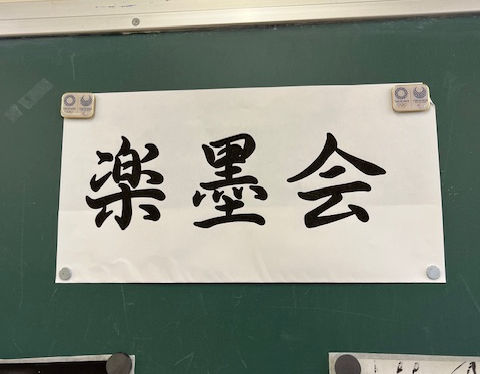 楽墨会